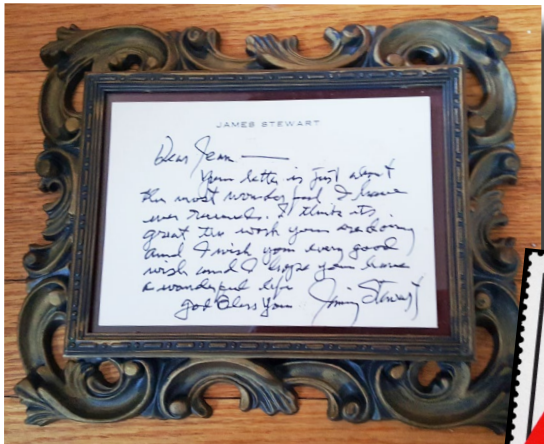 JAMES STEWART
Dear Jean —
Your letter is just about
the most wonderful I have
ever received. I think its
great the work your are doing
and I wish you every good
wish and I hope you have
a wonderful life
God Bless You Jimmy Stewart